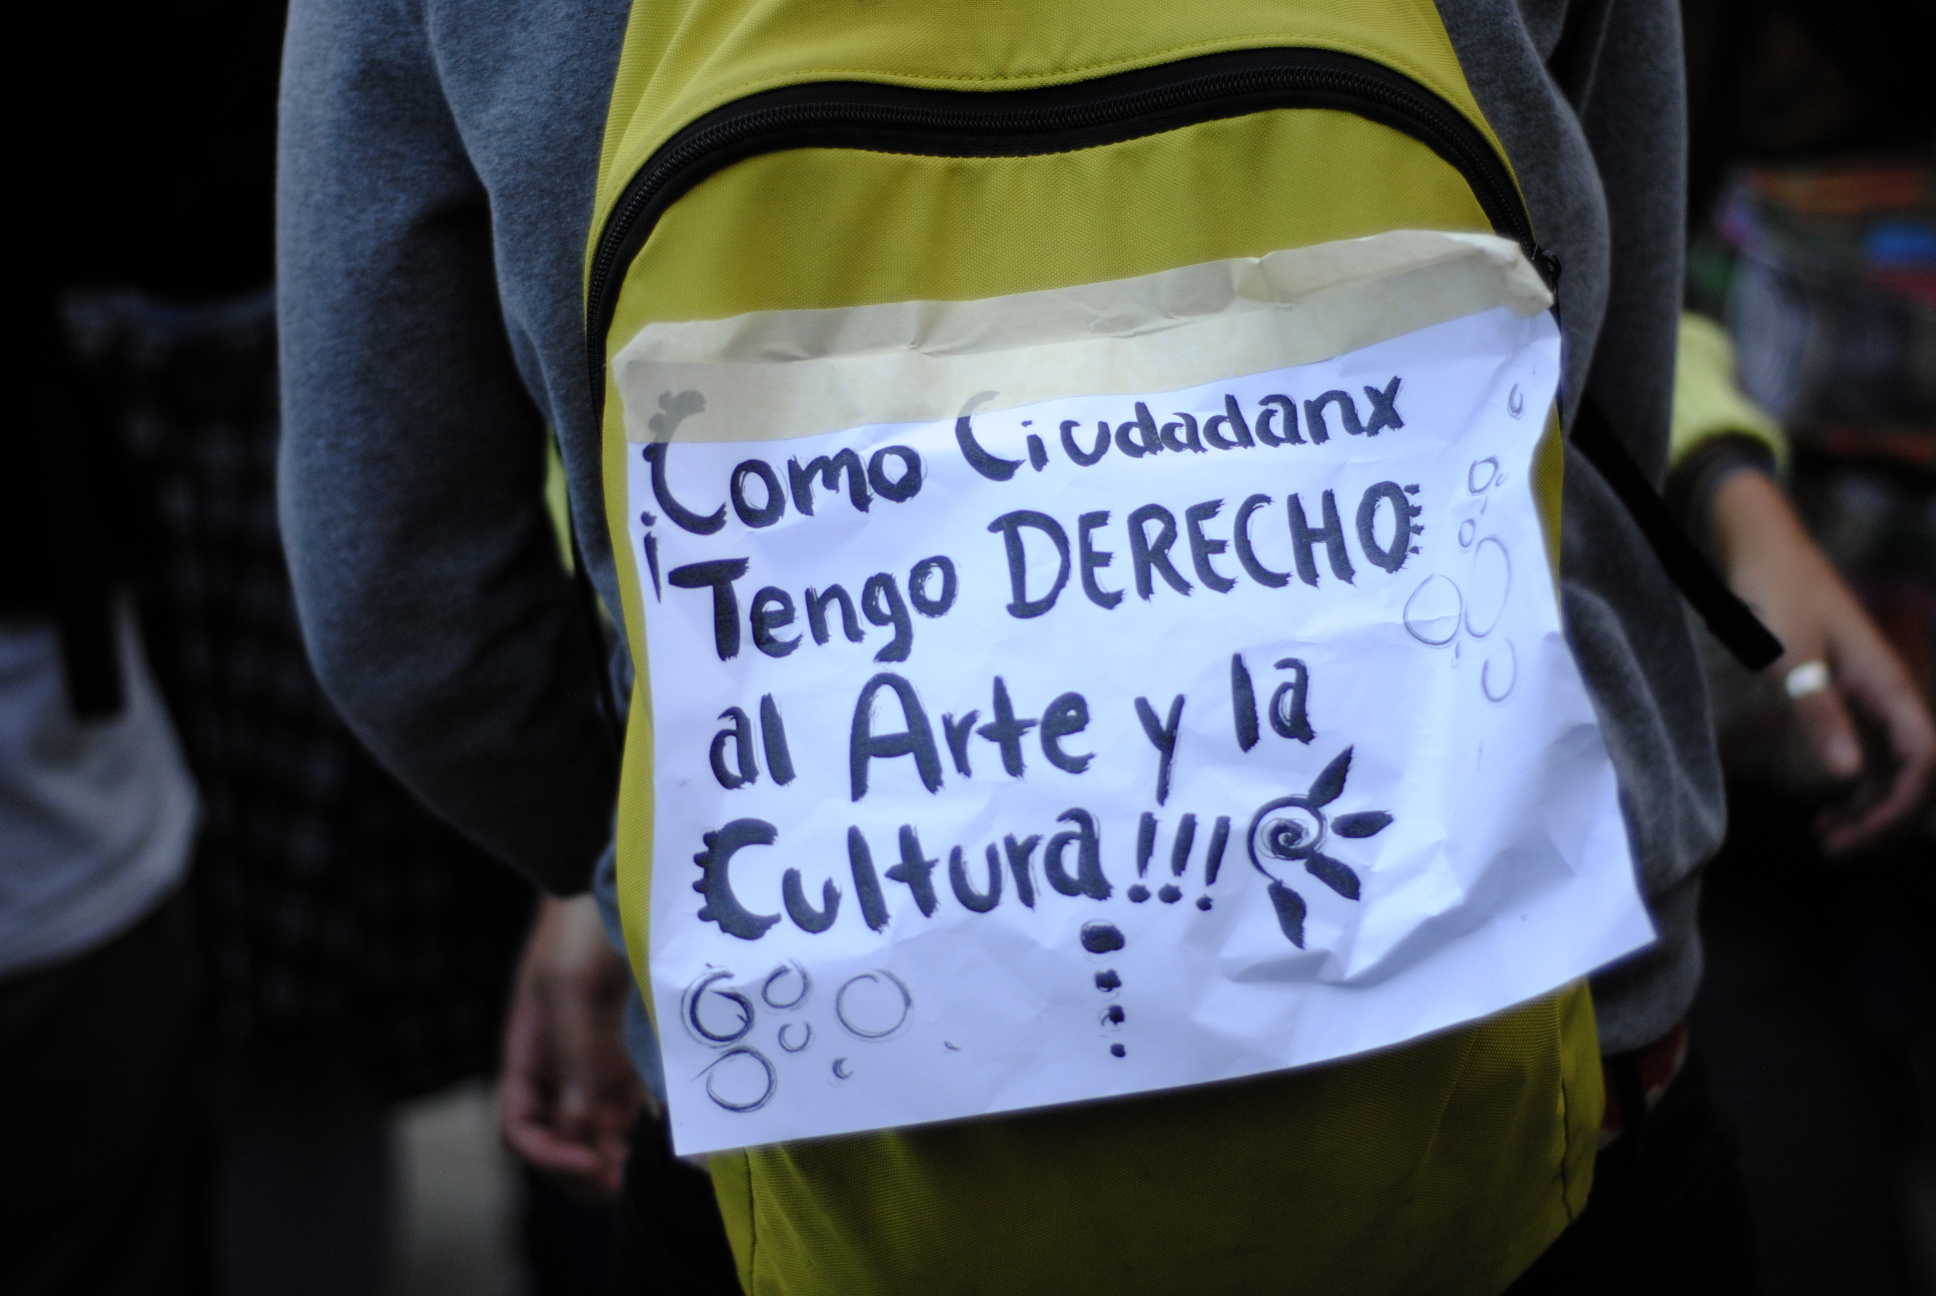 Como Ciudadanx
¡Tengo DERECHO
al Arte y la
Cultura!!!